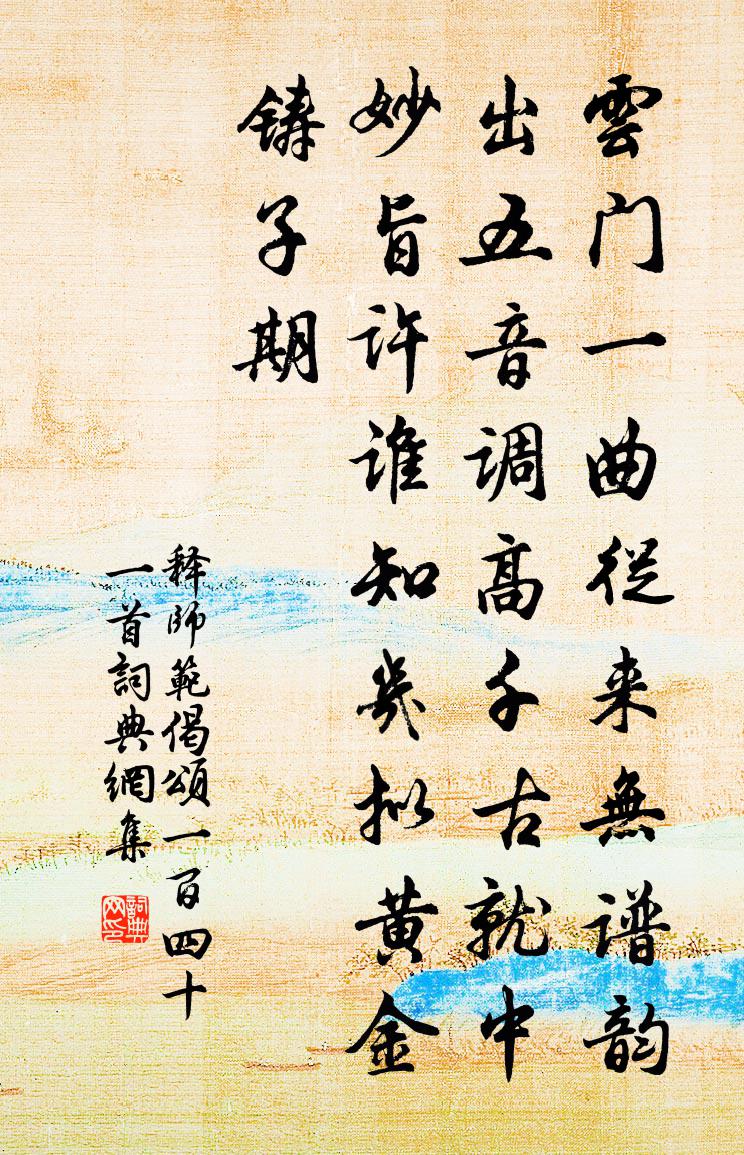 雲门一曲從来無谱韵
出五音调高千古就中
妙旨许谁知几拟黄金
铸子期
释師範偈頌一百四十
一首詞典網集
詞典网印